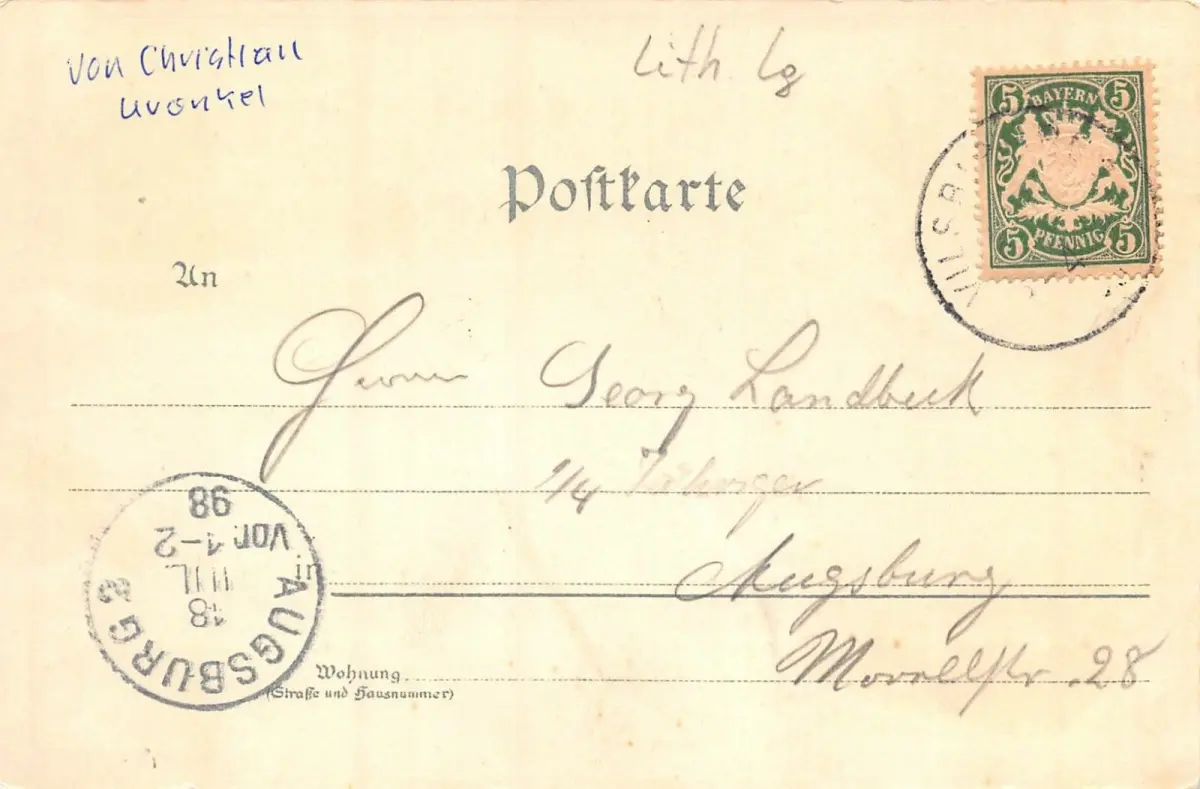 von Christian
Uronkel
lith lg
Postkarte
5 BAYERN 5
5 PFENNIG 5
VILSBI
An
Herrn Georg Landbeck
1/4 Jähriger
in
Augsburg
Morellstr. 28
Wohnung
(Straße und Hausnummer)
AUGSBURG 3
18
JUL.
Vor. 1-2
98